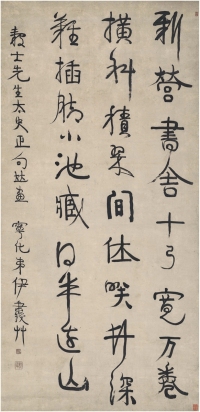 新營書舍十弓寬萬卷
橫斜積翠間休咲井深
難插脚小池臧得半邊山
穀士先生太史正句并畫 寧化弟伊艸